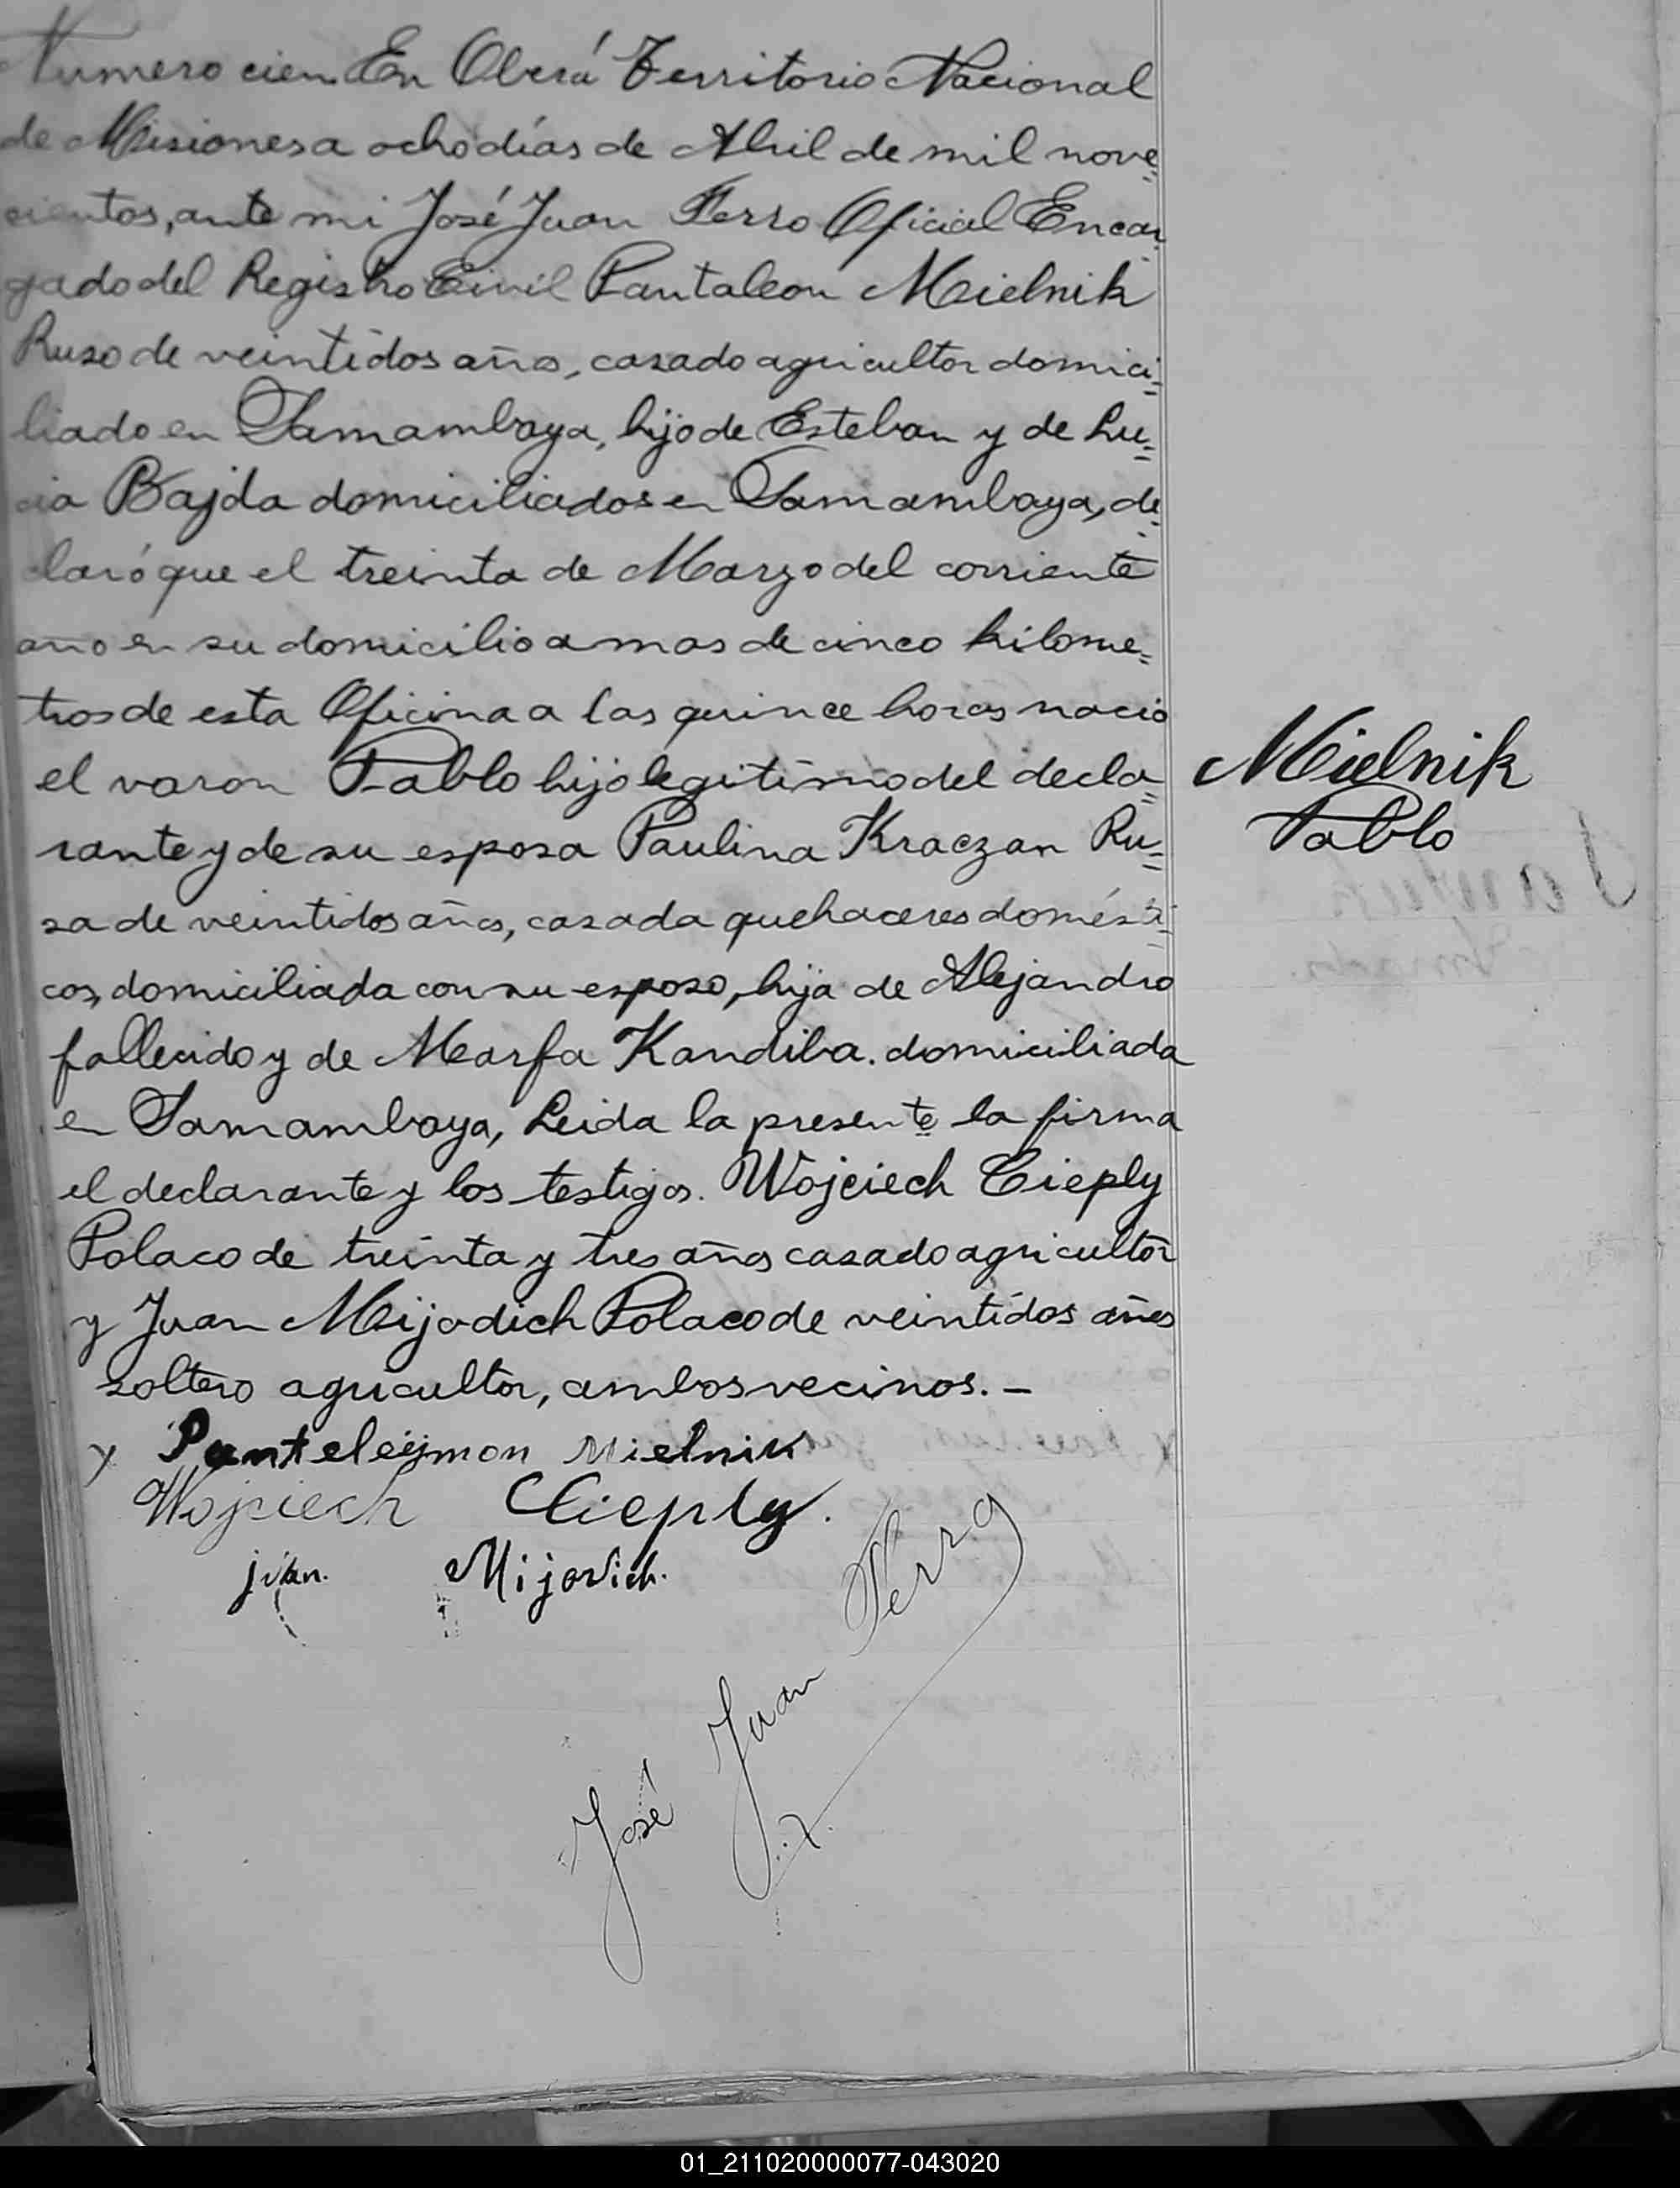 Numero cien En Oberá Territorio Nacional
de Misiones a ocho días de Abril de mil nove=
cientos, ante mi José Juan Ferro Oficial Encar=
gado del Registro Civil Pantaleon Mielnik
Ruso de veintidos años, casado agricultor domici=
liado en Samambaya, hijo de Esteban y de Lu=
cia Bajda domiciliados en Samambaya, de=
claró que el treinta de Marzo del corriente
año en su domicilio a mas de cinco kilome=
tros de esta Oficina a las quince horas nació
el varon Pablo hijo legitimo del decla=
rante y de su esposa Paulina Kraczan Ru=
sa de veintidos años, casada quehaceres domésti=
cos, domiciliada con su esposo, hija de Alejandro
fallecido y de Marfa Kandiba. domiciliada
en Samambaya, Leida la presente la firma
el declarante y los testigos. Wojciech Cieply
Polaco de treinta y tres años casado agricultor
y Juan Mijodich Polaco de veintidos años
soltero agricultor, ambos vecinos. —
Mielnik
Pablo
y Panteleijmon Mielnik
Wojciech Cieply.
Mijovich.
José Juan Ferro
01_211020000077-043020